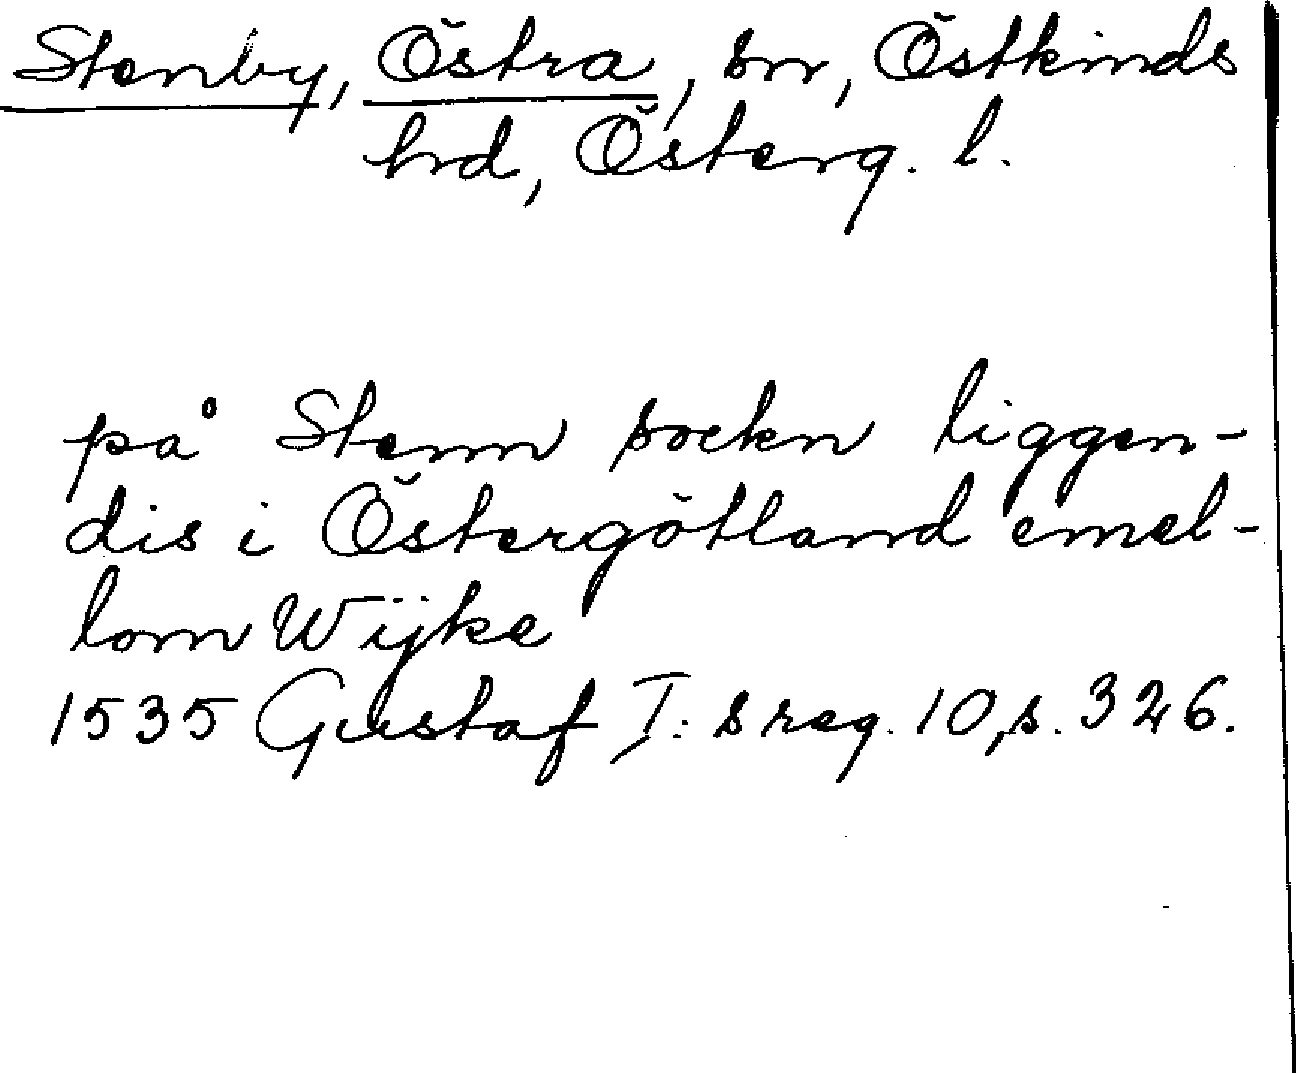 Stenby, Östra, sn, Östkinds
hrd, Österg. l.
på Stenn sockn liggen-
dis i Östergötland emel-
lom Wijke
1535 Gustaf I:s reg. 10, s. 326.